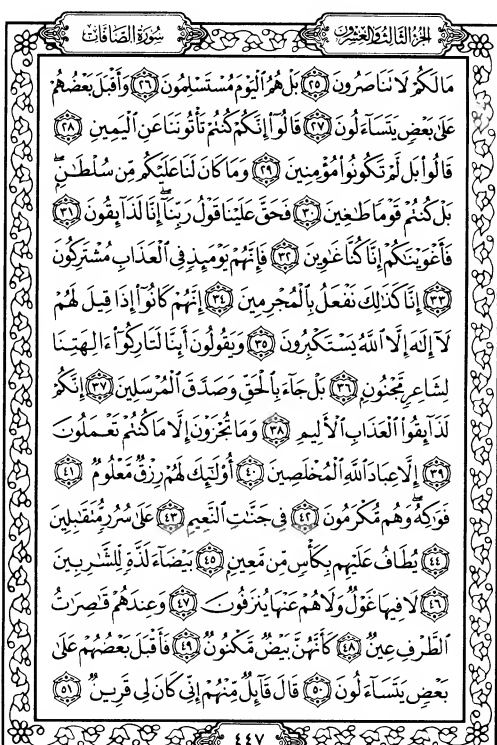 الجزء الثالث والعشرون
سورة الصافات
مَا لَكُمْ لَا تَنَاصَرُونَ ٢٥ بَلْ هُمُ الْيَوْمَ مُسْتَسْلِمُونَ ٢٦ وَأَقْبَلَ بَعْضُهُمْ
عَلَىٰ بَعْضٍ يَتَسَاءَلُونَ ٢٧ قَالُوا إِنَّكُمْ كُنتُمْ تَأْتُونَنَا عَنِ الْيَمِينِ ٢٨
قَالُوا بَل لَّمْ تَكُونُوا مُؤْمِنِينَ ٢٩ وَمَا كَانَ لَنَا عَلَيْكُم مِّن سُلْطَٰنٍۖ
بَلْ كُنتُمْ قَوْمًا طَٰغِينَ ٣٠ فَحَقَّ عَلَيْنَا قَوْلُ رَبِّنَاۖ إِنَّا لَذَائِقُونَ ٣١
فَأَغْوَيْنَٰكُمْ إِنَّا كُنَّا غَٰوِينَ ٣٢ فَإِنَّهُمْ يَوْمَئِذٍ فِي الْعَذَابِ مُشْتَرِكُونَ
٣٣ إِنَّا كَذَٰلِكَ نَفْعَلُ بِالْمُجْرِمِينَ ٣٤ إِنَّهُمْ كَانُوا إِذَا قِيلَ لَهُمْ
لَا إِلَٰهَ إِلَّا اللَّهُ يَسْتَكْبِرُونَ ٣٥ وَيَقُولُونَ أَئِنَّا لَتَارِكُوا ءَالِهَتِنَا
لِشَاعِرٍ مَّجْنُونٍ ٣٦ بَلْ جَاءَ بِالْحَقِّ وَصَدَّقَ الْمُرْسَلِينَ ٣٧ إِنَّكُمْ
لَذَائِقُوا الْعَذَابِ الْأَلِيمِ ٣٨ وَمَا تُجْزَوْنَ إِلَّا مَا كُنتُمْ تَعْمَلُونَ
٣٩ إِلَّا عِبَادَ اللَّهِ الْمُخْلَصِينَ ٤٠ أُولَٰئِكَ لَهُمْ رِزْقٌ مَّعْلُومٌ ٤١
فَوَٰكِهُۖ وَهُم مُّكْرَمُونَ ٤٢ فِي جَنَّٰتِ النَّعِيمِ ٤٣ عَلَىٰ سُرُرٍ مُّتَقَٰبِلِينَ
٤٤ يُطَافُ عَلَيْهِم بِكَأْسٍ مِّن مَّعِينٍ ٤٥ بَيْضَاءَ لَذَّةٍ لِّلشَّٰرِبِينَ
٤٦ لَا فِيهَا غَوْلٌ وَلَا هُمْ عَنْهَا يُنزَفُونَ ٤٧ وَعِندَهُمْ قَٰصِرَٰتُ
الطَّرْفِ عِينٌ ٤٨ كَأَنَّهُنَّ بَيْضٌ مَّكْنُونٌ ٤٩ فَأَقْبَلَ بَعْضُهُمْ عَلَىٰ
بَعْضٍ يَتَسَاءَلُونَ ٥٠ قَالَ قَائِلٌ مِّنْهُمْ إِنِّي كَانَ لِي قَرِينٌ ٥١
٤٤٧